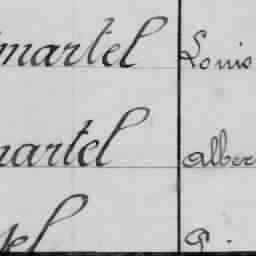 martel Louis
martel Alber
tel P.